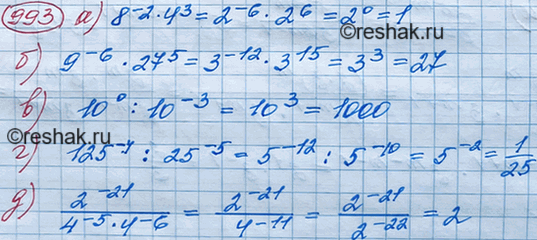 993 а) 8⁻² · 4³ = 2⁻⁶ · 2⁶ = 2⁰ = 1
©reshak.ru
б) 9⁻⁶ · 27⁵ = 3⁻¹² · 3¹⁵ = 3³ = 27
в) 10⁰ : 10⁻³ = 10³ = 1000
©reshak.ru
г) 125⁻⁴ : 25⁻⁵ = 5⁻¹² : 5⁻¹⁰ = 5⁻² = 1/25
д) 2⁻²¹/(4⁻⁵ · 4⁻⁶) = 2⁻²¹/4⁻¹¹ = 2⁻²¹/2⁻²² = 2